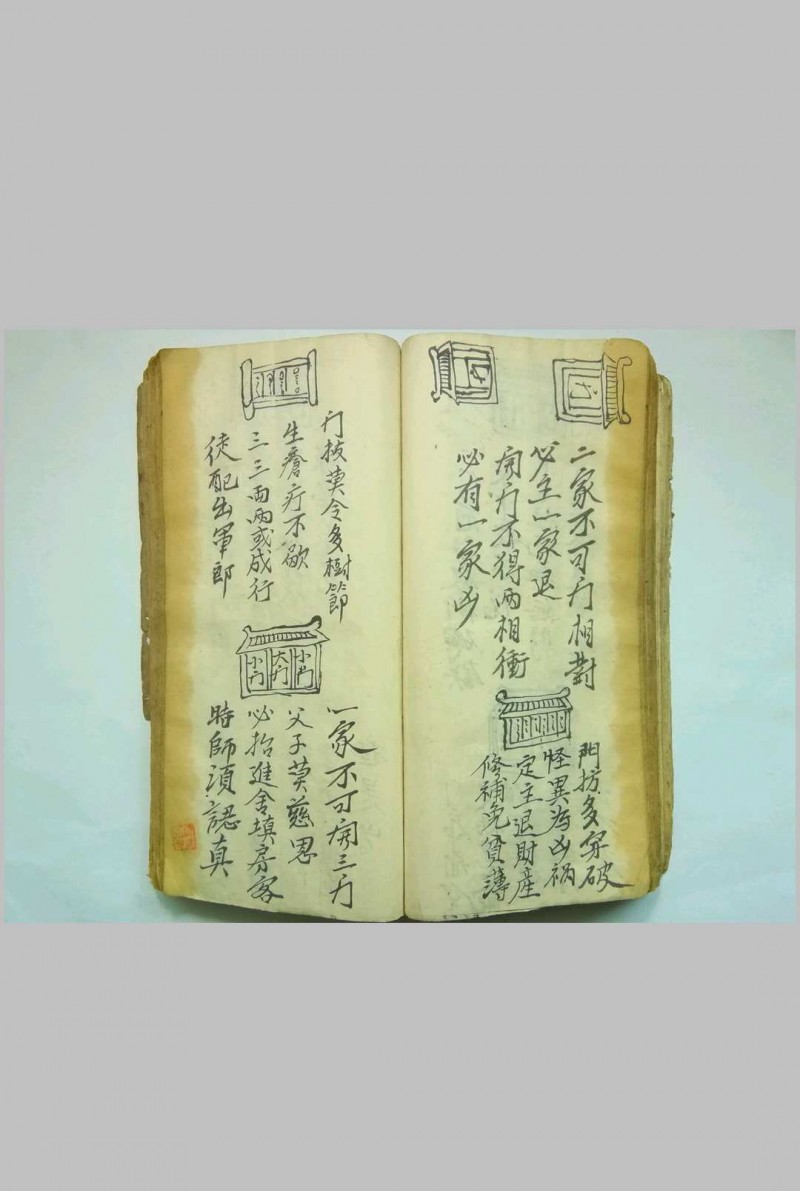 二家不可门相對
必主一家退
開门不得兩相衝
必有一家凶
門㧍多穿破
怪異为凶祸
定主退財產
修補免貧薄
门㧞莫令多樹節
生瘡疔不歇
三三両兩或成行
徒配出軍郎
小门
大门
小门
一家不可開三门
父子莫慈恩
必招進舍填房客
時師須認真